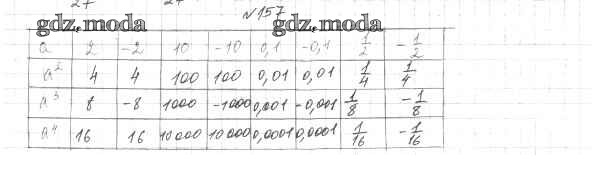 27 27
N157
gdz.moda gdz.moda
a 2 -2 10 -10 0,1 -0,1 1/2 -1/2
a² 4 4 100 100 0,01 0,01 1/4 1/4
a³ 8 -8 1000 -1000 0,001 -0,001 1/8 -1/8
a⁴ 16 16 10000 10000 0,0001 0,0001 1/16 -1/16